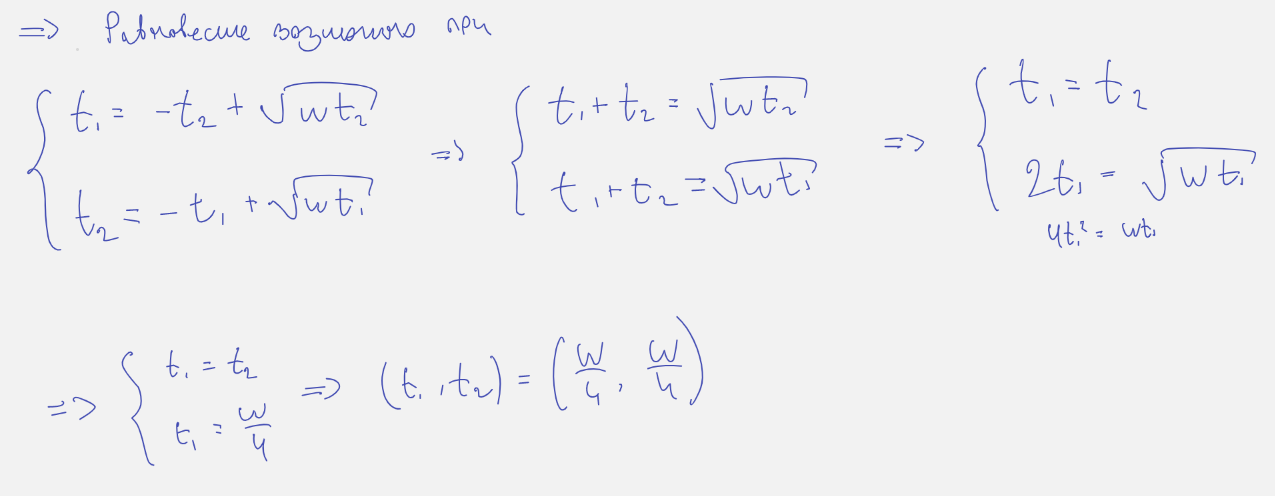 => Равновесие возможно при
{ t₁ = -t₂ + √(wt₂) => { t₁+t₂ = √(wt₂) => { t₁ = t₂
t₂ = -t₁ + √(wt₁) t₁+t₂ = √(wt₁) 2t₁ = √(wt₁)
4t₁² = wt₁
=> { t₁ = t₂ => (t₁, t₂) = (w/4, w/4)
t₁ = w/4